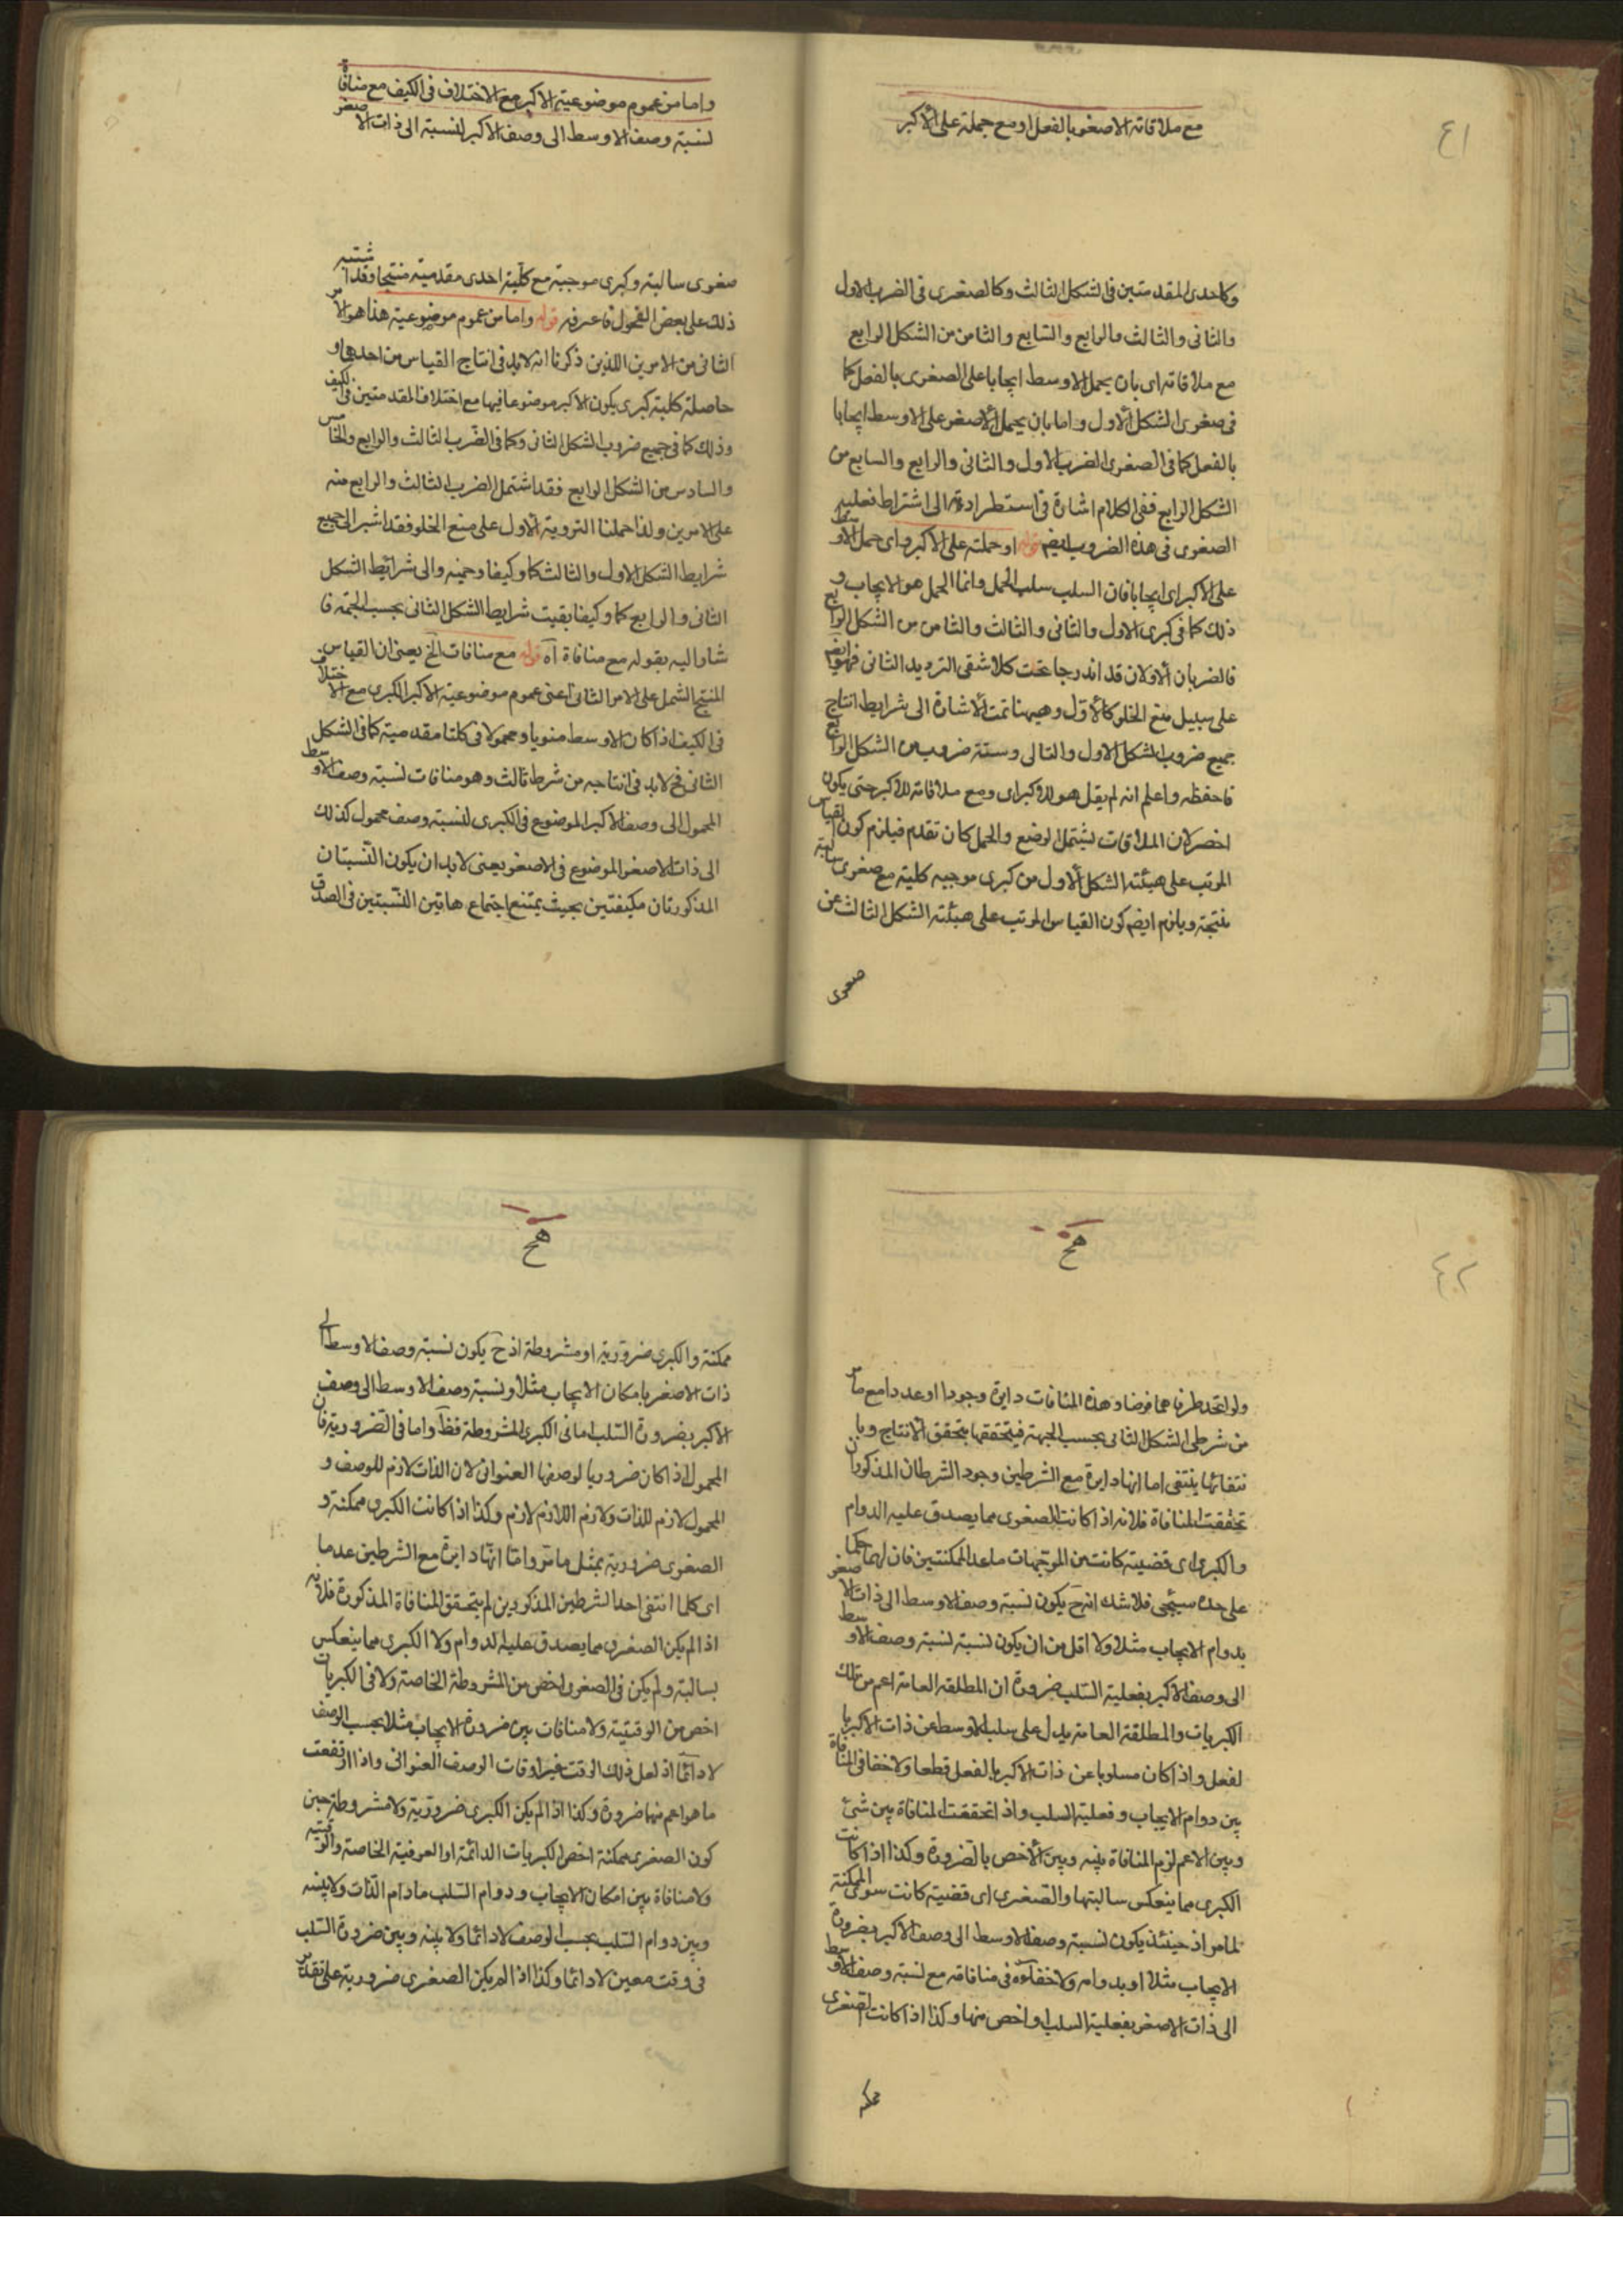 ٤١
مع ملاقاته الاصغر بالفعل او مع جملة على الأكبر
وكاحدى المقدمتين فى الشكل الثالث وكالصغرى فى الضرب الاول
والثانى والثالث والرابع والسابع والثامن من الشكل الرابع
مع ملاقاته اى بان يحمل الاوسط ايجابا على الصغرى بالفعل كما
فى صغرى الشكل الأول واما بان يحمل الأصغر على الاوسط ايجابا
بالفعل كما فى الصغرى الضرب الاول والثانى والرابع والسابع من
الشكل الرابع ففى الكلام اشارة استطرادة الى اشتراط فعلية
الصغرى فى هذه الضروب ايضم قوله او حملته على الأكبر اى حمل الاوسط
على الاكبر اى ايجابا فان السلب سلب الحمل وانما الحمل هو الايجاب و
ذلك كما فى كبرى الاول والثانى والثالث والثامن من الشكل الرابع
فالضربان الأولان قد اندرجا تحت كلا شقى الترديد الثانى فهو ايضم
على سبيل منع الخلو كالأول وهيهنا تمت الأشارة الى شرايط انتاج
جميع ضروب الشكل الاول والتالى وستة ضروب من الشكل الرابع
فاحفظه واعلم انه لم يقل هو للاكبر اى ومع ملاقاته للاكبر حتى يكون
اخصر لان الملاقات يشتمل الوضع والحمل كان تقدم فيلزم كون القياس
المرتب على هيئته الشكل الأول من كبرى موجبه كلية مع صغرى سالبة
منتجة ويلزم ايضم كون القياس المرتب على هيئته الشكل الثالث عن
صغرى
واما من عموم موضوعية الاكبر مع الاختلاف فى الكيف مع منافاة
لنسبة وصف الاوسط الى وصف الاكبر لنسبة الى ذات الاصغر
صغرى سالبة وكبرى موجبة مع كلية احدى مقدميته منتجا وقد اشتبه
ذلك على بعض الفحول فاعرفه قوله واما من عموم موضوعية هذا هو الامر
الثانى من الامرين اللذين ذكرنا انه لابد فى انتاج القياس من احدهما و
حاصلة كلية كبرى يكون الاكبر موضوعا فيها مع اختلاف المقدمتين فى الكيف
وذلك كما فى جميع ضروب الشكل الثانى وكما فى الضرب الثالث والرابع والخامس
والسادس من الشكل الرابع فقد اشتمل الضرب الثالث والرابع منه
على الامرين ولذا حملنا الترويد الأول على منع الخلو فقد اشير الى جميع
شرايط الشكل الاول والثالث كما وكيفا وجهة والى شرائط الشكل
الثانى والرابع كما وكيفا بقيت شرايط الشكل الثانى بحسب الجهة فا
شار اليه بقوله مع منافاة آه قوله مع منافات الخ يعنى ان القياس
المنتج الشمل على الامر الثانى اعنى عموم موضوعية الاكبر الكبرى مع الاختلاف
فى الكيف اذا كان الاوسط منويا ومحمولا فى كلتا مقدميته كما فى الشكل
الثانى فح لابد فى انتاجه من شرط ثالث وهو منافات نسبة وصف الاوسط
المحمول الى وصف الاكبر الموضوع فى الكبرى لنسبة وصف محمول كذلك
الى ذات الاصغر الموضوع فى الاصغر يعنى لابد ان يكون النسبتان
المذكورتان مكيفتين بحيث يمتنع اجتماع هاتين النسبتين فى الصدق
٤٢
ولو اتحد طرفاهما فرضا وهذه المنافات دايرة وجودا وعددا مع ما مر
من شرطى الشكل الثانى بحسب الجهة فبتحققها يتحقق الأنتاج وبا
نتفائها ينتفى اما انها دايرة مع الشرطين وجود الشرطان المذكوران
تحققت المنافاة فلانه اذا كانت الصغرى مما يصدق عليه الدوام
والكبرى اى قضية كانت من الموجهات ما عدا الممكنتين فان لهما حكما
على حدة سيجئ فلا شك انه ح يكون نسبة وصف الاوسط الى ذات الاصغر
بدوام الايجاب مثلا ولا اقل من ان يكون نسبة نسبة وصف الاوسط
الى وصف الاكبر بفعلية السلب ضرورة ان المطلقه العامة اعم من تلك
الكبريات والمطلقة العامة يدل على سلب الاوسط عن ذات الاكبر با
لفعل واذا كان مسلوبا عن ذات الاكبر بالفعل قطعا ولا خفا فى المنافاة
بين دوام الايجاب وفعلية السلب واذا تحققت المنافاة بين شئ
وبين الاعم لزم المنافاة بينه وبين الأخص بالضرورة وكذا اذا كانت
الكبرى مما ينعكس سالبتها والصغرى اى قضية كانت سوى الممكنة
لما مر اذ حينئذ يكون نسبة وصف الاوسط الى وصف الاكبر بضرورة
الايجاب مثلا او بدوامه ولا خفاءه فى منافاته مع نسبة وصف الاوسط
الى ذات الاصغر بفعلية السلب او اخص منها وكذا اذا كانت الصغرى
ممكنة
ممكنة والكبرى ضرورية او مشروطة اذ ح يكون نسبة وصف الاوسط الى
ذات الاصغر بامكان الايجاب مثلا ونسبة وصف الاوسط الى وصف
الاكبر بضرورة السلب اما فى الكبرى المشروطة فظ واما فى الضرورية فان
المحمول اذا كان ضروريا لوصفها العنوانى لان الذات لازم للوصف و
المحمول لازم للذات ولازم اللازم لازم وكذا اذا كانت الكبرى ممكنة و
الصغرى ضرورية بمثل ما مر واما انها دايرة مع الشرطين عدما
اى كلما انتفى احد الشرطين المذكورين لم يتحقق المنافاة المذكورة فلانه
اذا لم يكن الصغرى مما يصدق عليه الدوام ولا الكبرى مما ينعكس
بسالبة ولم يكن فى الصغرى اخص من المشروطة الخاصة ولا فى الكبريات
اخص من الوقتية ولا منافات بين ضرورة الايجاب مثلا بحسب الوصف
لا دائما اذ لعل ذلك الوقت غير اوقات الوصف العنوانى واذا ارتفعت
ما هو اعم منها ضرورة وكذا اذا لم يكن الكبرى ضرورية ولا مشروطة حين
كون الصغرى ممكنة اخص الكبريات الدائمة او العرفية الخاصة والوقتية
ولا منافاة بين امكان الايجاب ودوام السلب مادام الذات ولا بينه
وبين دوام السلب بحسب الوصف لا دائما ولا بينه وبين ضرورة السلب
فى وقت معين لا دائما وكذا اذا لم يكن الصغرى ضرورية على تقدير